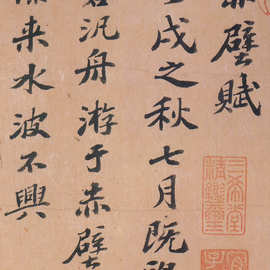 赤壁賦
戌之秋七月既
汎舟游于赤壁
来水波不興
三希堂
精鑑璽